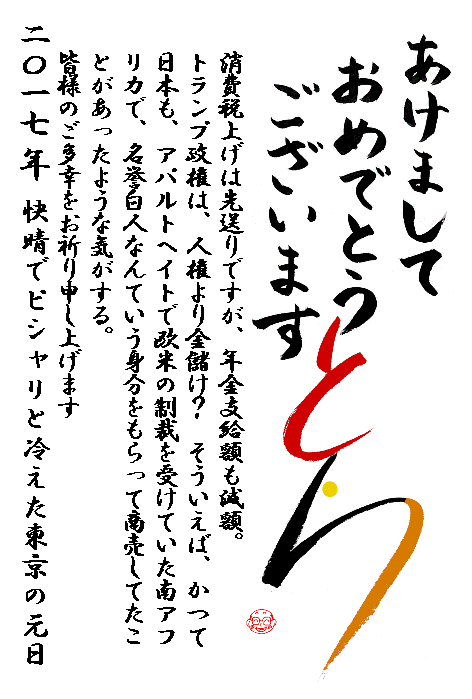 あけまして
おめでとう
ございます
とり
消費税上げは先送りですが、年金支給額も減額。
トランプ政権は、人権より金儲け？　そういえば、かつて
日本も、アパルトヘイトで欧米の制裁を受けていた南アフ
リカで、名誉白人なんていう身分をもらって商売してたこ
とがあったような気がする。
皆様のご多幸をお祈り申し上げます
二〇一七年　快晴でピシャリと冷えた東京の元日